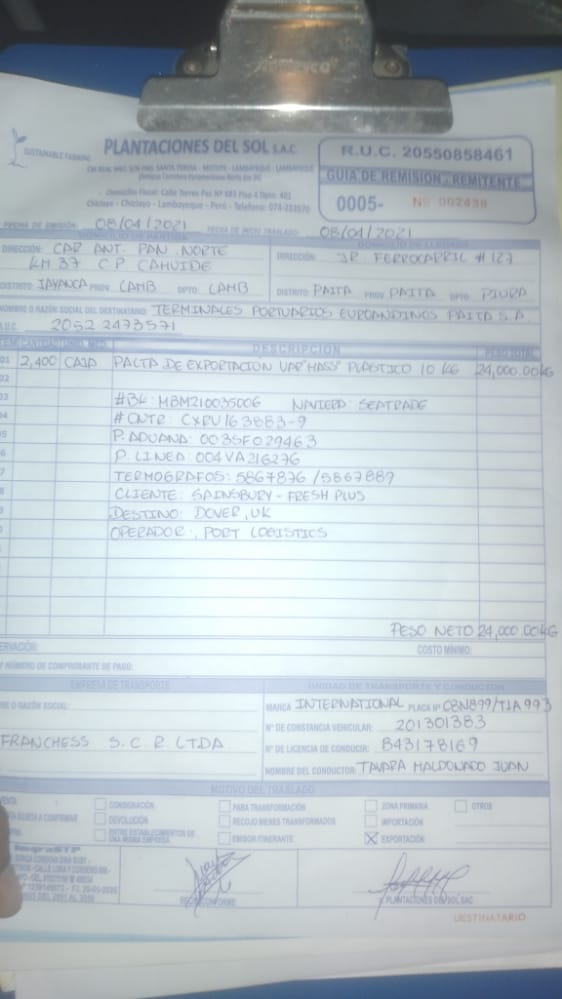 SUSTAINABLE FARMING
PLANTACIONES DEL SOL S.A.C.
Domicilio Fiscal: Calle Torres Paz Nº 683 Piso 4 Dpto. 401
Chiclayo - Chiclayo - Lambayeque - Perú - Telefono: 074-233570
R.U.C. 20550858461
GUIA DE REMISION - REMITENTE
0005- Nº 002438
FECHA DE EMISIÓN: 08/04/2021
FECHA DE INICIO TRASLADO: 08/04/2021
DIRECCIÓN: CAR ANT. PAN. NORTE
KM 37 C P CAHUIDE
DISTRITO: JAYANCA PROV. LAMB DPTO. LAMB
DIRECCIÓN: JR. FERROCARRIL #127
DISTRITO: PAITA PROV. PAITA DPTO. PIURA
NOMBRE O RAZÓN SOCIAL DEL DESTINATARIO: TERMINALES PORTUARIOS EUROANDINOS PAITA S.A.
R.U.C. 20522473571
DESCRIPCION PESO TOTAL
01 2,400 CAJA PALTA DE EXPORTACION VAR "HASS" PLASTICO 10 KG 24,000.00KG
02
#BK: MBM210035006 NAVIERA: SEATRADE
# CNTR: CXRU163883-9
P. ADUANA: 0035F029463
P. LINEA: 004VA216276
TERMOGRAFOS: 5867876 / 5867889
CLIENTE: SAINSBURY - FRESH PLUS
DESTINO: DOVER, UK
OPERADOR: PORT LOGISTICS
PESO NETO 24,000.00KG
COSTO MÍNIMO:
NÚMERO DE COMPROBANTE DE PAGO:
EMPRESA DE TRANSPORTE
UNIDAD DE TRANSPORTE Y CONDUCTOR
MARCA INTERNATIONAL PLACA Nº C8N899/T1A993
Nº DE CONSTANCIA VEHICULAR: 201301383
FRANCHESS S.C.R. LTDA
Nº DE LICENCIA DE CONDUCIR: B43178169
NOMBRE DEL CONDUCTOR: TAVARA MALDONADO JUAN
MOTIVO DEL TRASLADO
VENTA
CONSIGNACIÓN
PARA TRANSFORMACIÓN
ZONA PRIMARIA
OTROS
VENTA SUJETA A CONFIRMAR
DEVOLUCIÓN
RECOJO BIENES TRANSFORMADOS
IMPORTACIÓN
ENTRE ESTABLECIMIENTOS DE
UNA MISMA EMPRESA
EMISOR ITINERANTE
EXPORTACIÓN
PLANTACIONES DEL SOL SAC
DESTINATARIO